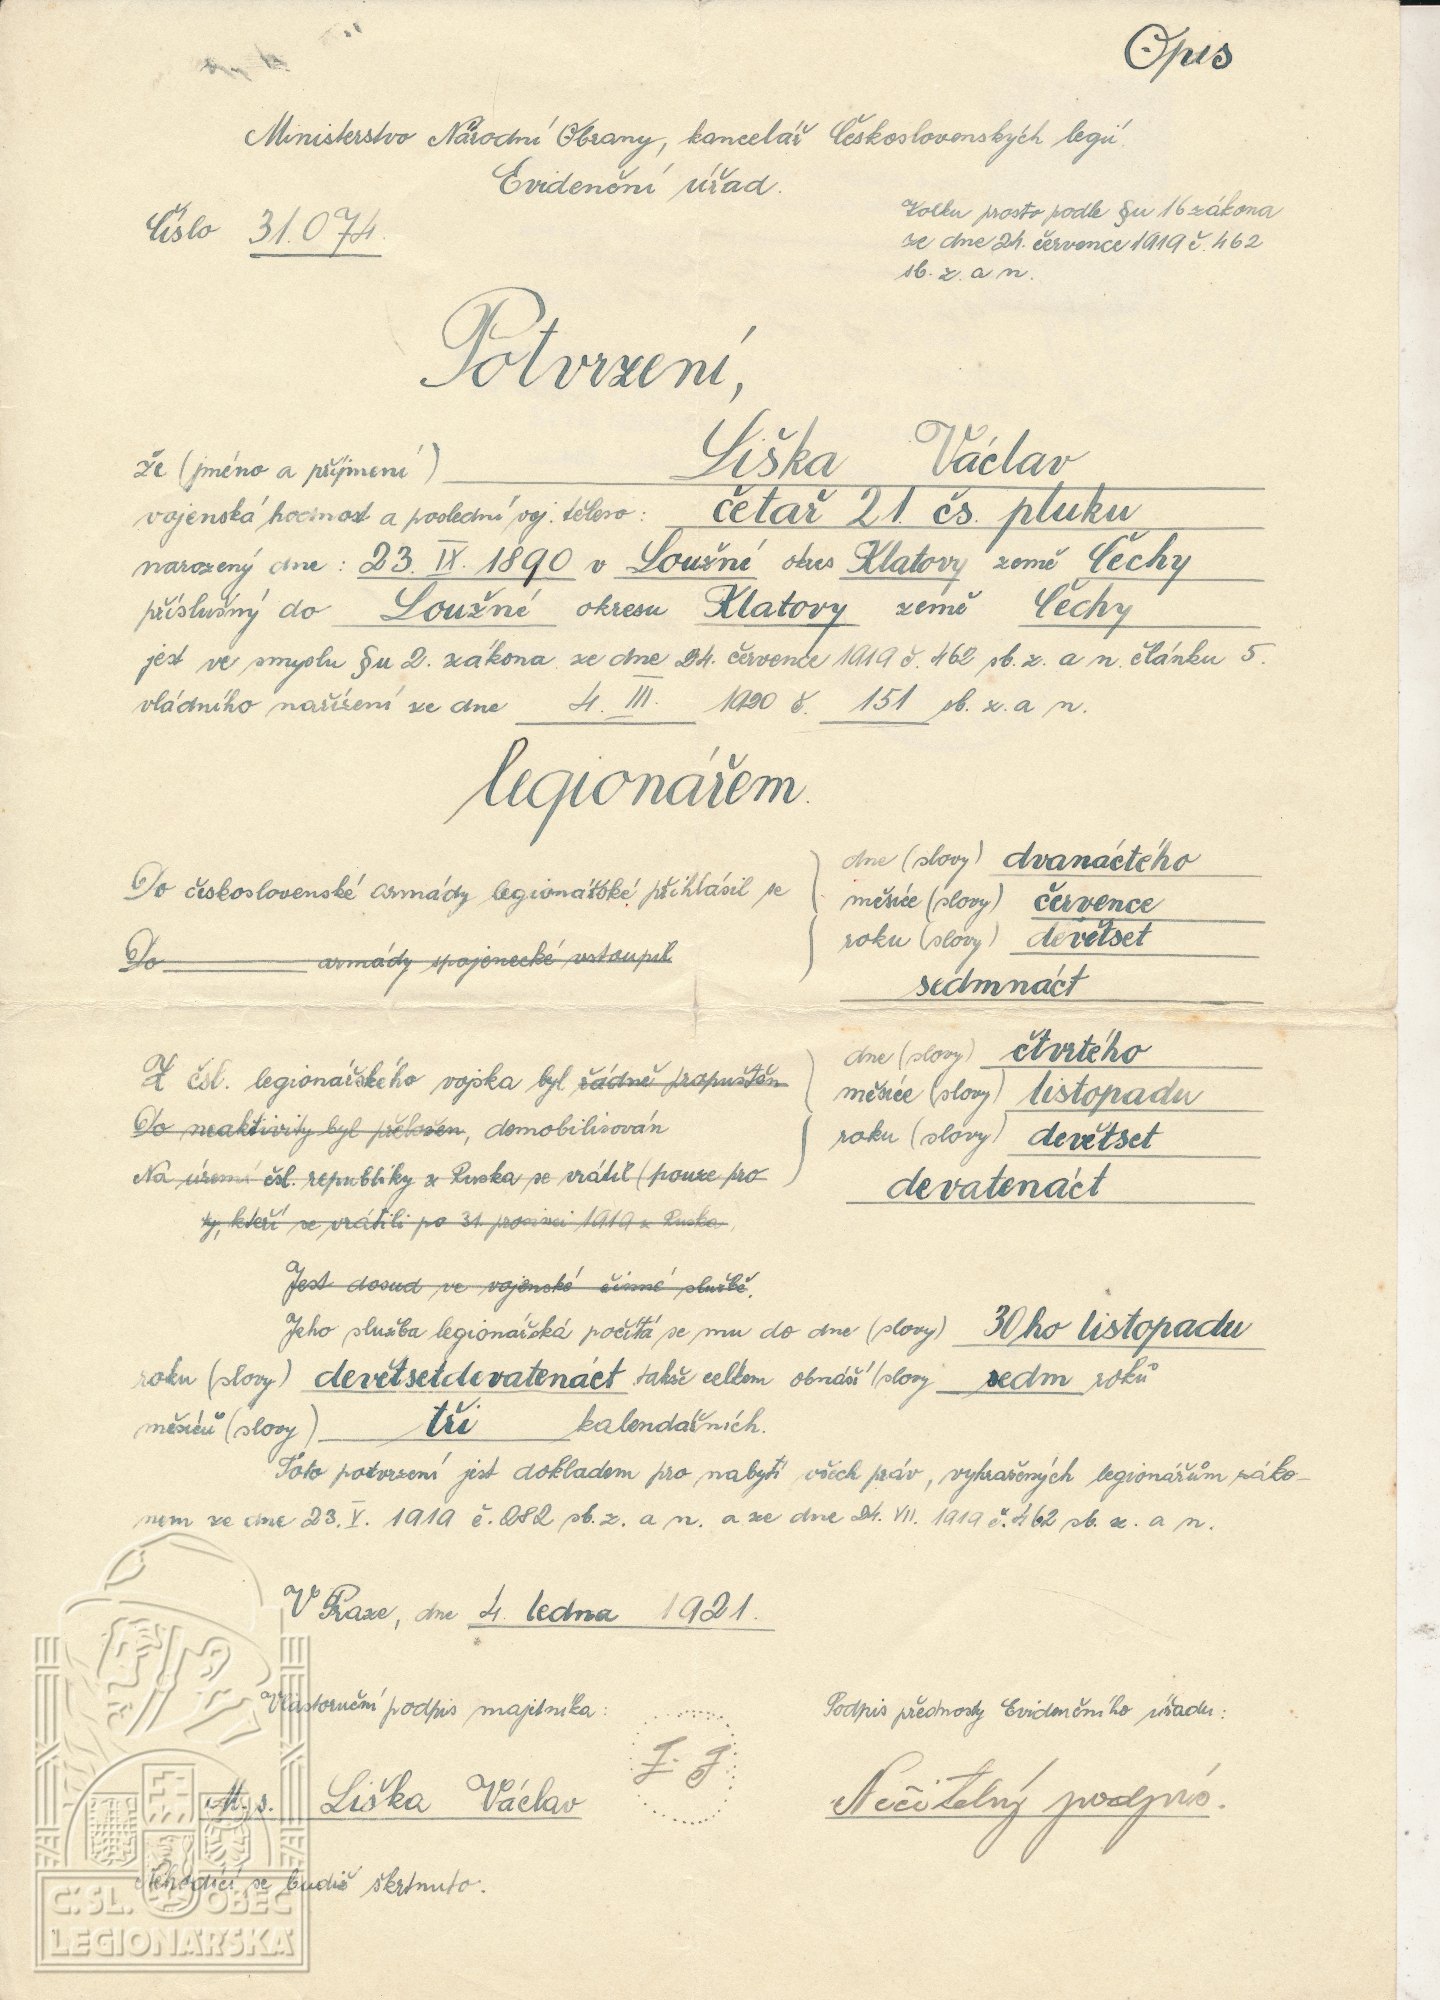 Opis
Ministerstvo Národní Obrany, kancelář Československých legií.
Evidenční úřad.
Číslo 31.074.
Kolku prosto podle §u 16 zákona
ze dne 24. července 1919 č. 462
sb. z. a n.
Potvrzení,
že (jméno a příjmení) Liška Václav
vojenská hodnost a poslední voj. těleso: četař 21. čs. pluku
narozený dne: 23. IX. 1890 v Loužní okres Klatovy země Čechy
příslušný do Loužné okresu Klatovy země Čechy
jest ve smyslu §u 2. zákona ze dne 24. července 1919 č. 462 sb. z. a n. článku 5.
vládního nařízení ze dne 4. III. 1920 č. 151 sb. z. a n.
legionářem.
Do československé armády legionářské přihlásil se
Do armády spojenecké vstoupil
dne (slovy) dvanáctého
měsíce (slovy) července
roku (slovy) devětset
sedmnáct
Z čsl. legionářského vojska byl řádně propuštěn
Do neaktivity byl přeložen, demobilisován
Na území čsl. republiky z Ruska se vrátil (pouze pro
ty, kteří se vrátili po 31. prosinci 1919 z Ruska
dne (slovy) čtvrtého
měsíce (slovy) listopadu
roku (slovy) devětset
devatenáct
Jest dosud ve vojenské činné službě.
Jeho služba legionářská počítá se mu do dne (slovy) 30ho listopadu
roku (slovy) devětsetdevatenáct takže celkem obnáší (slovy sedm roků
měsíců (slovy) tři kalendářních.
Toto potvrzení jest dokladem pro nabytí všech práv, vyhražených legionářům záko-
nem ze dne 23. V. 1919 č. 282 sb. z. a n. a ze dne 24. VII. 1919 č. 462 sb. z. a n.
V Praze, dne 4. ledna 1921.
Vlastoruční podpis majitníka:
Podpis přednosty Evidenčního úřadu:
M. s. Liška Václav
Nečitelný podpis.
Nehodící se budiž škrtnuto.
ČSL. OBEC
LEGIONÁŘSKÁ